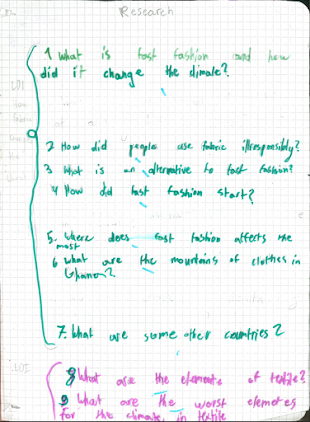 Research
1 What is fast fashion and how
did it change the climate?
2 How did people use fabric illresponsibly?
3 What is an alternative to fast fashion?
4 How did fast fashion start?
5. Where does fast fashion affects the
most
6 what are the mountains of clothes in
Ghana?
7. What are some other countries?
8 What are the elements of textile?
9 What are the worst elemetes
for the climate, in textile